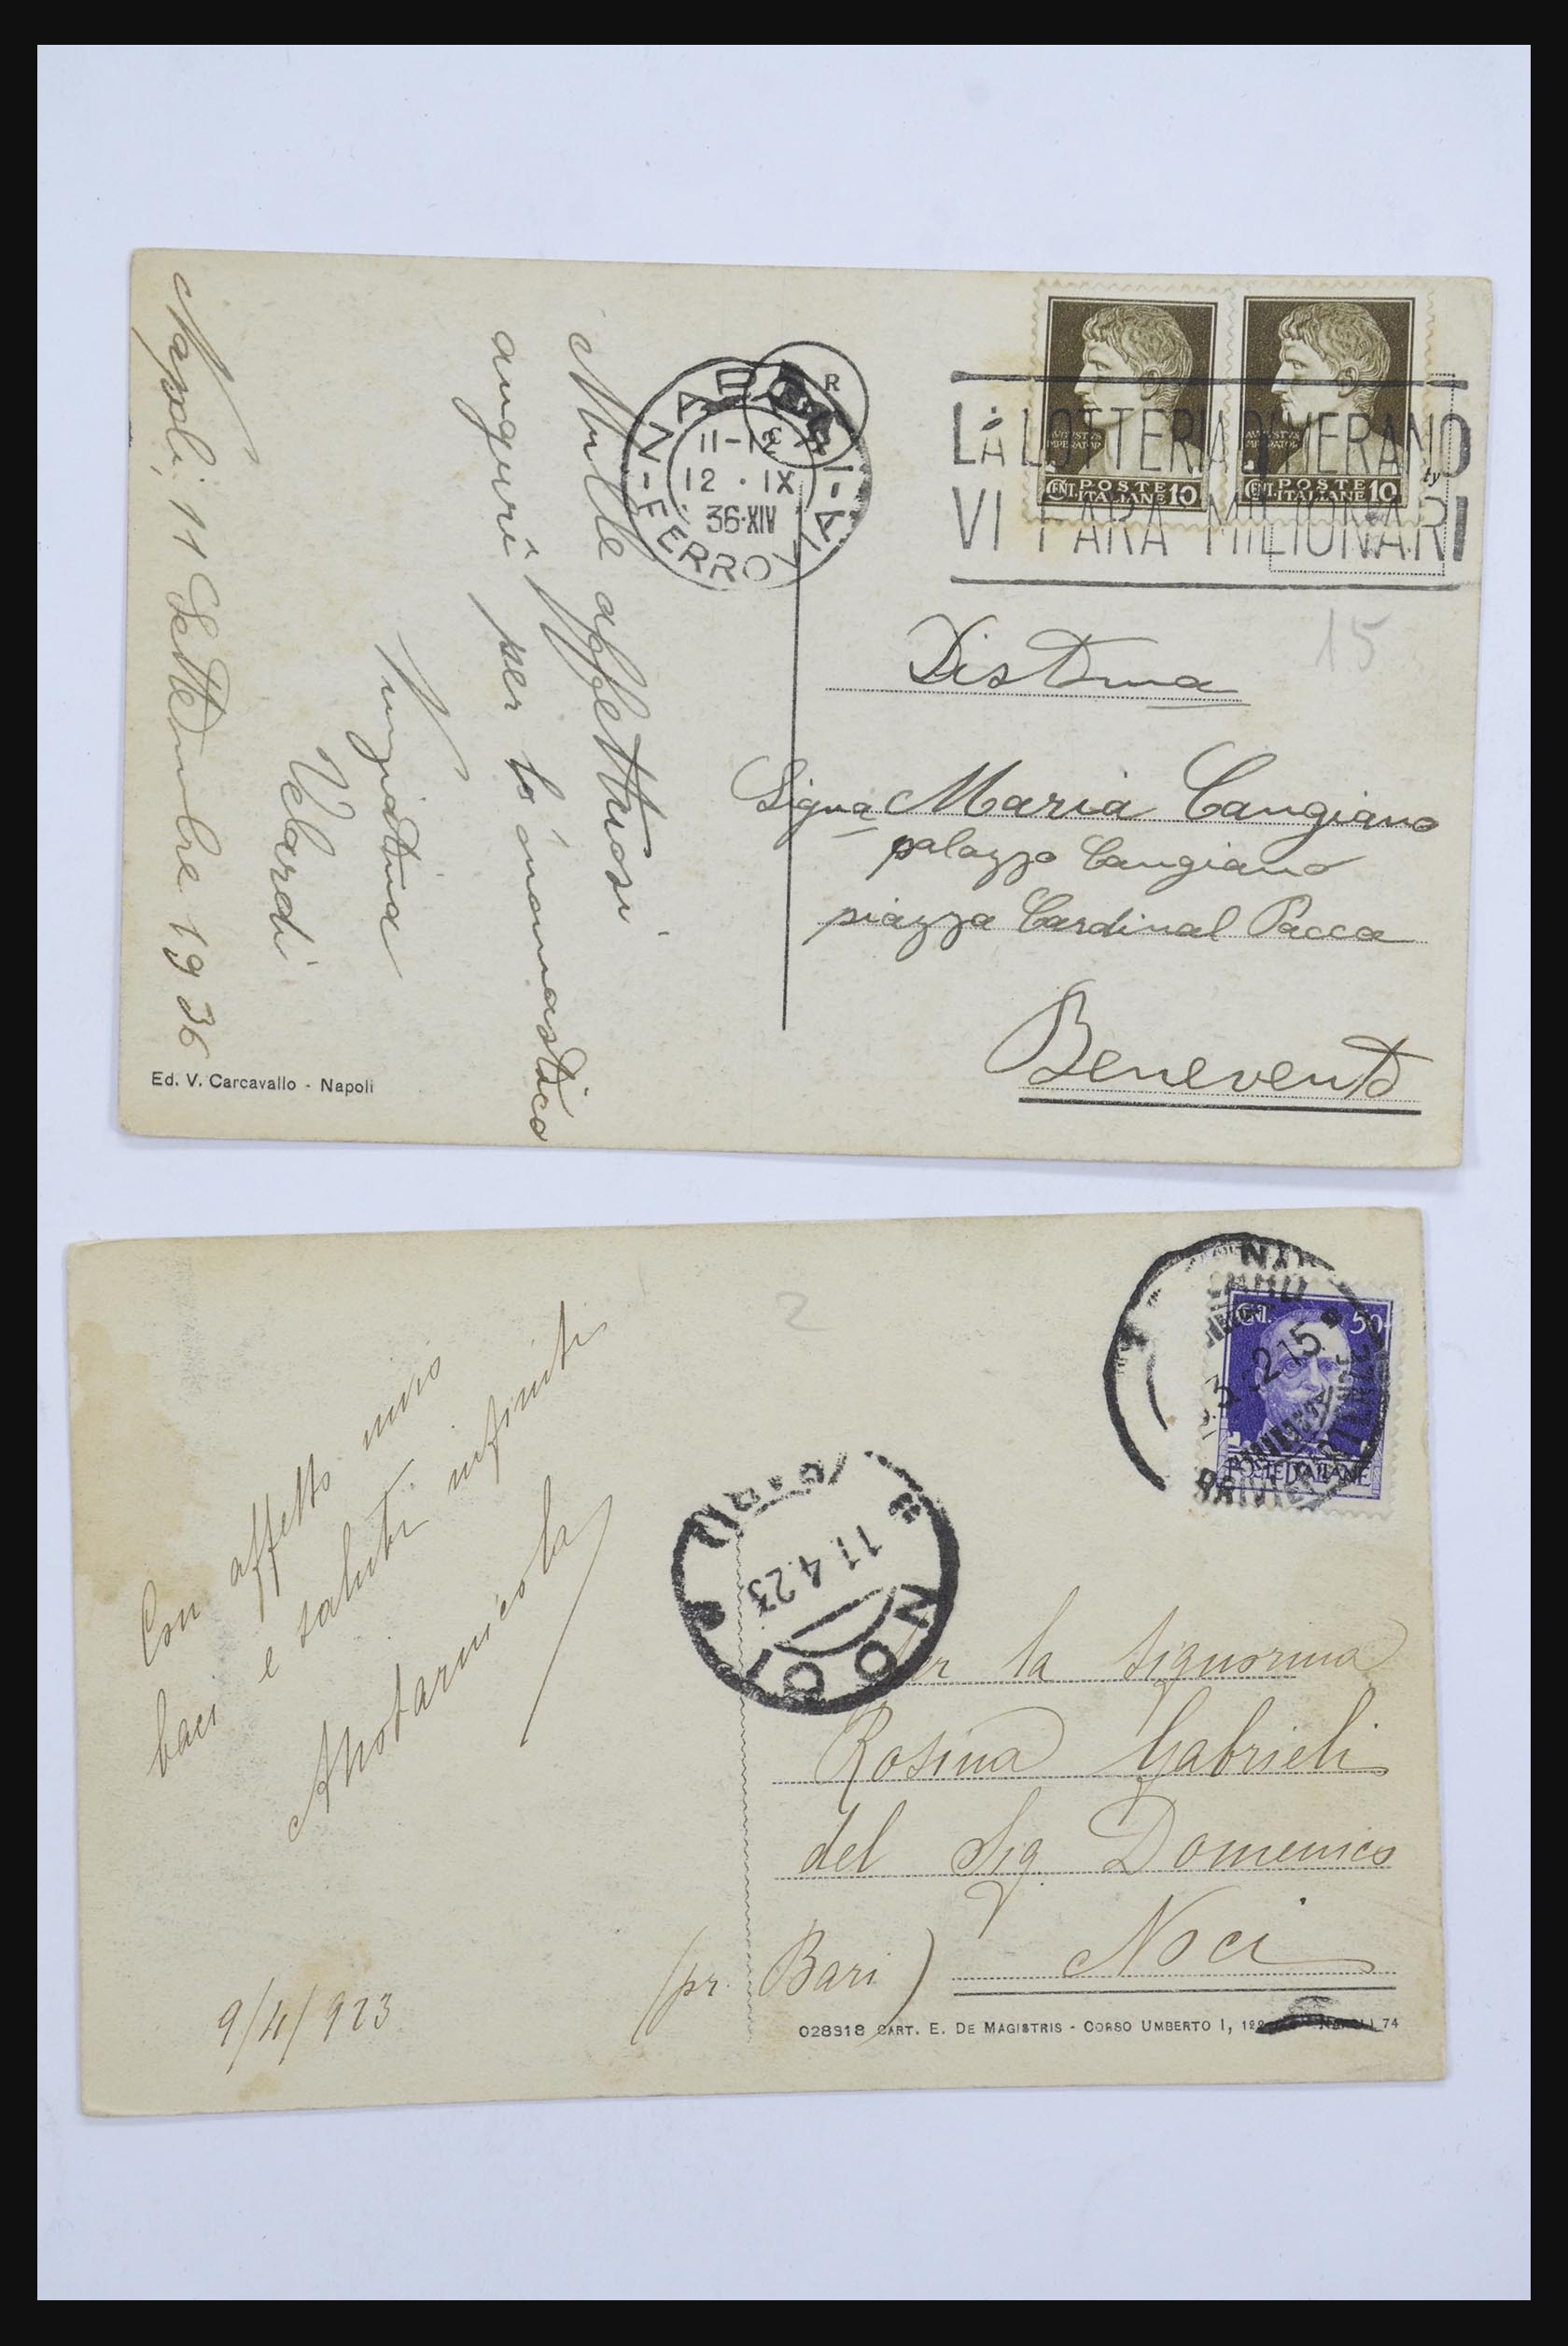 Napoli, 11 Settembre 1936
Mille affettuosi
auguri per lo onomastico
Nunziatina
Velardi
Ed. V. Carcavallo - Napoli
NAPOLI
11-12
12 · IX
36·XIV
FERROVIA
R
LA LOTTERIA DI MERANO
VI FARÀ MILIONARI
AVGVSTVS
IMPERATOR
CENT. POSTE ITALIANE 10
AVGVSTVS
IMPERATOR
CENT. POSTE ITALIANE 10
15
Distinta
Signa Maria Cangiano
palazzo Cangiano
piazza Cardinal Pacca
Benevento
2
Con affetto mio
baci e saluti infiniti
9/4/923
CENT. 50
POSTE ITALIANE
NOCI
11.4.23
Per la Signorina
Rosina Gabrieli
del Sig. Domenico
Noci
(pr. Bari)
028918 CART. E. DE MAGISTRIS - CORSO UMBERTO I, NAPOLI 74